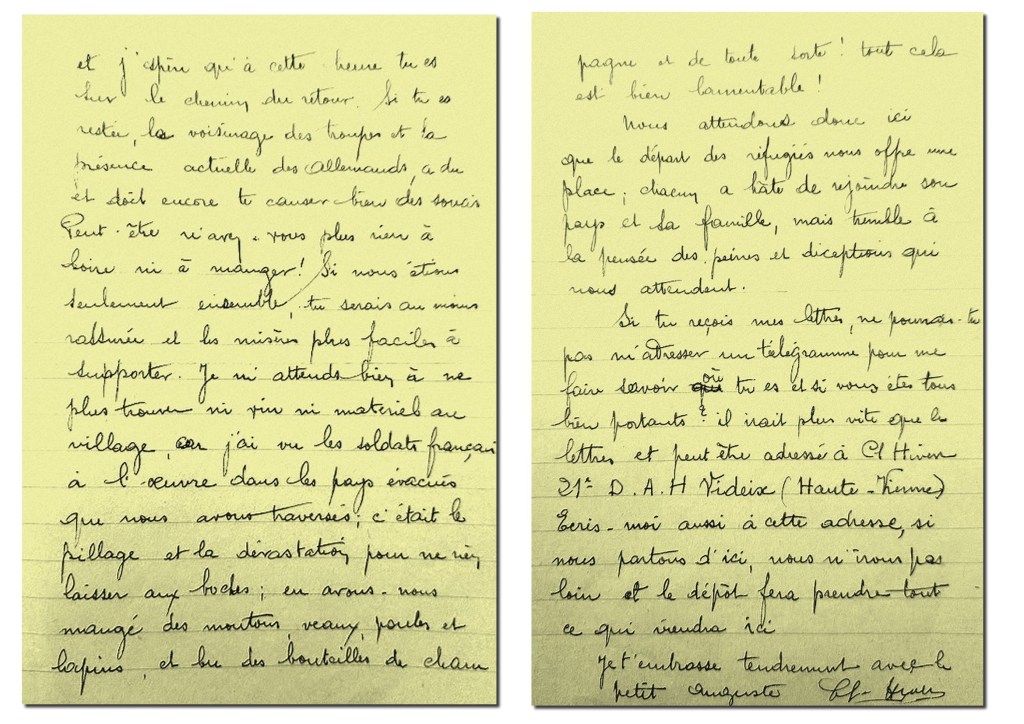 et j'espère qu'à cette heure tu es
sur le chemin du retour. Si tu es
restée, le voisinage des troupes et la
présence actuelle des Allemands, a du
et doit encore te causer bien des soucis
Peut-être n'avez-vous plus rien à
boire ni à manger! Si nous étions
seulement ensemble, tu serais au moins
rassurée et les misères plus faciles à
supporter. Je m'attends bien à ne
plus trouver ni vin ni materiel au
village, car j'ai vu les soldats français
à l'œuvre dans les pays évacués
que nous avons traversés; c'était le
pillage et la dévastation pour ne rien
laisser aux boches; en avons-nous
mangé des moutons, veaux, poules et
lapins, et bu des bouteilles de cham
pagne et de toute sorte! tout cela
est bien lamentable!
Nous attendons donc ici
que le départ des réfugiés nous offre une
place; chacun a hâte de rejoindre son
pays et sa famille, mais tremble à
la pensée des peines et déceptions qui
nous attendent.
Si tu reçois mes lettres, ne pourrais-tu
pas m'adresser un télégramme pour me
faire savoir où tu es et si vous êtes tous
bien portants? il irait plus vite que les
lettres et peut être adressé à Cl Hiver
21e D.A.H Videix (Haute-Vienne)
Ecris-moi aussi à cette adresse, si
nous partons d'ici, nous n'irons pas
loin et le dépôt fera prendre tout
ce qui viendra ici
Je t'embrasse tendrement avec le
petit Auguste Cl. Hiver